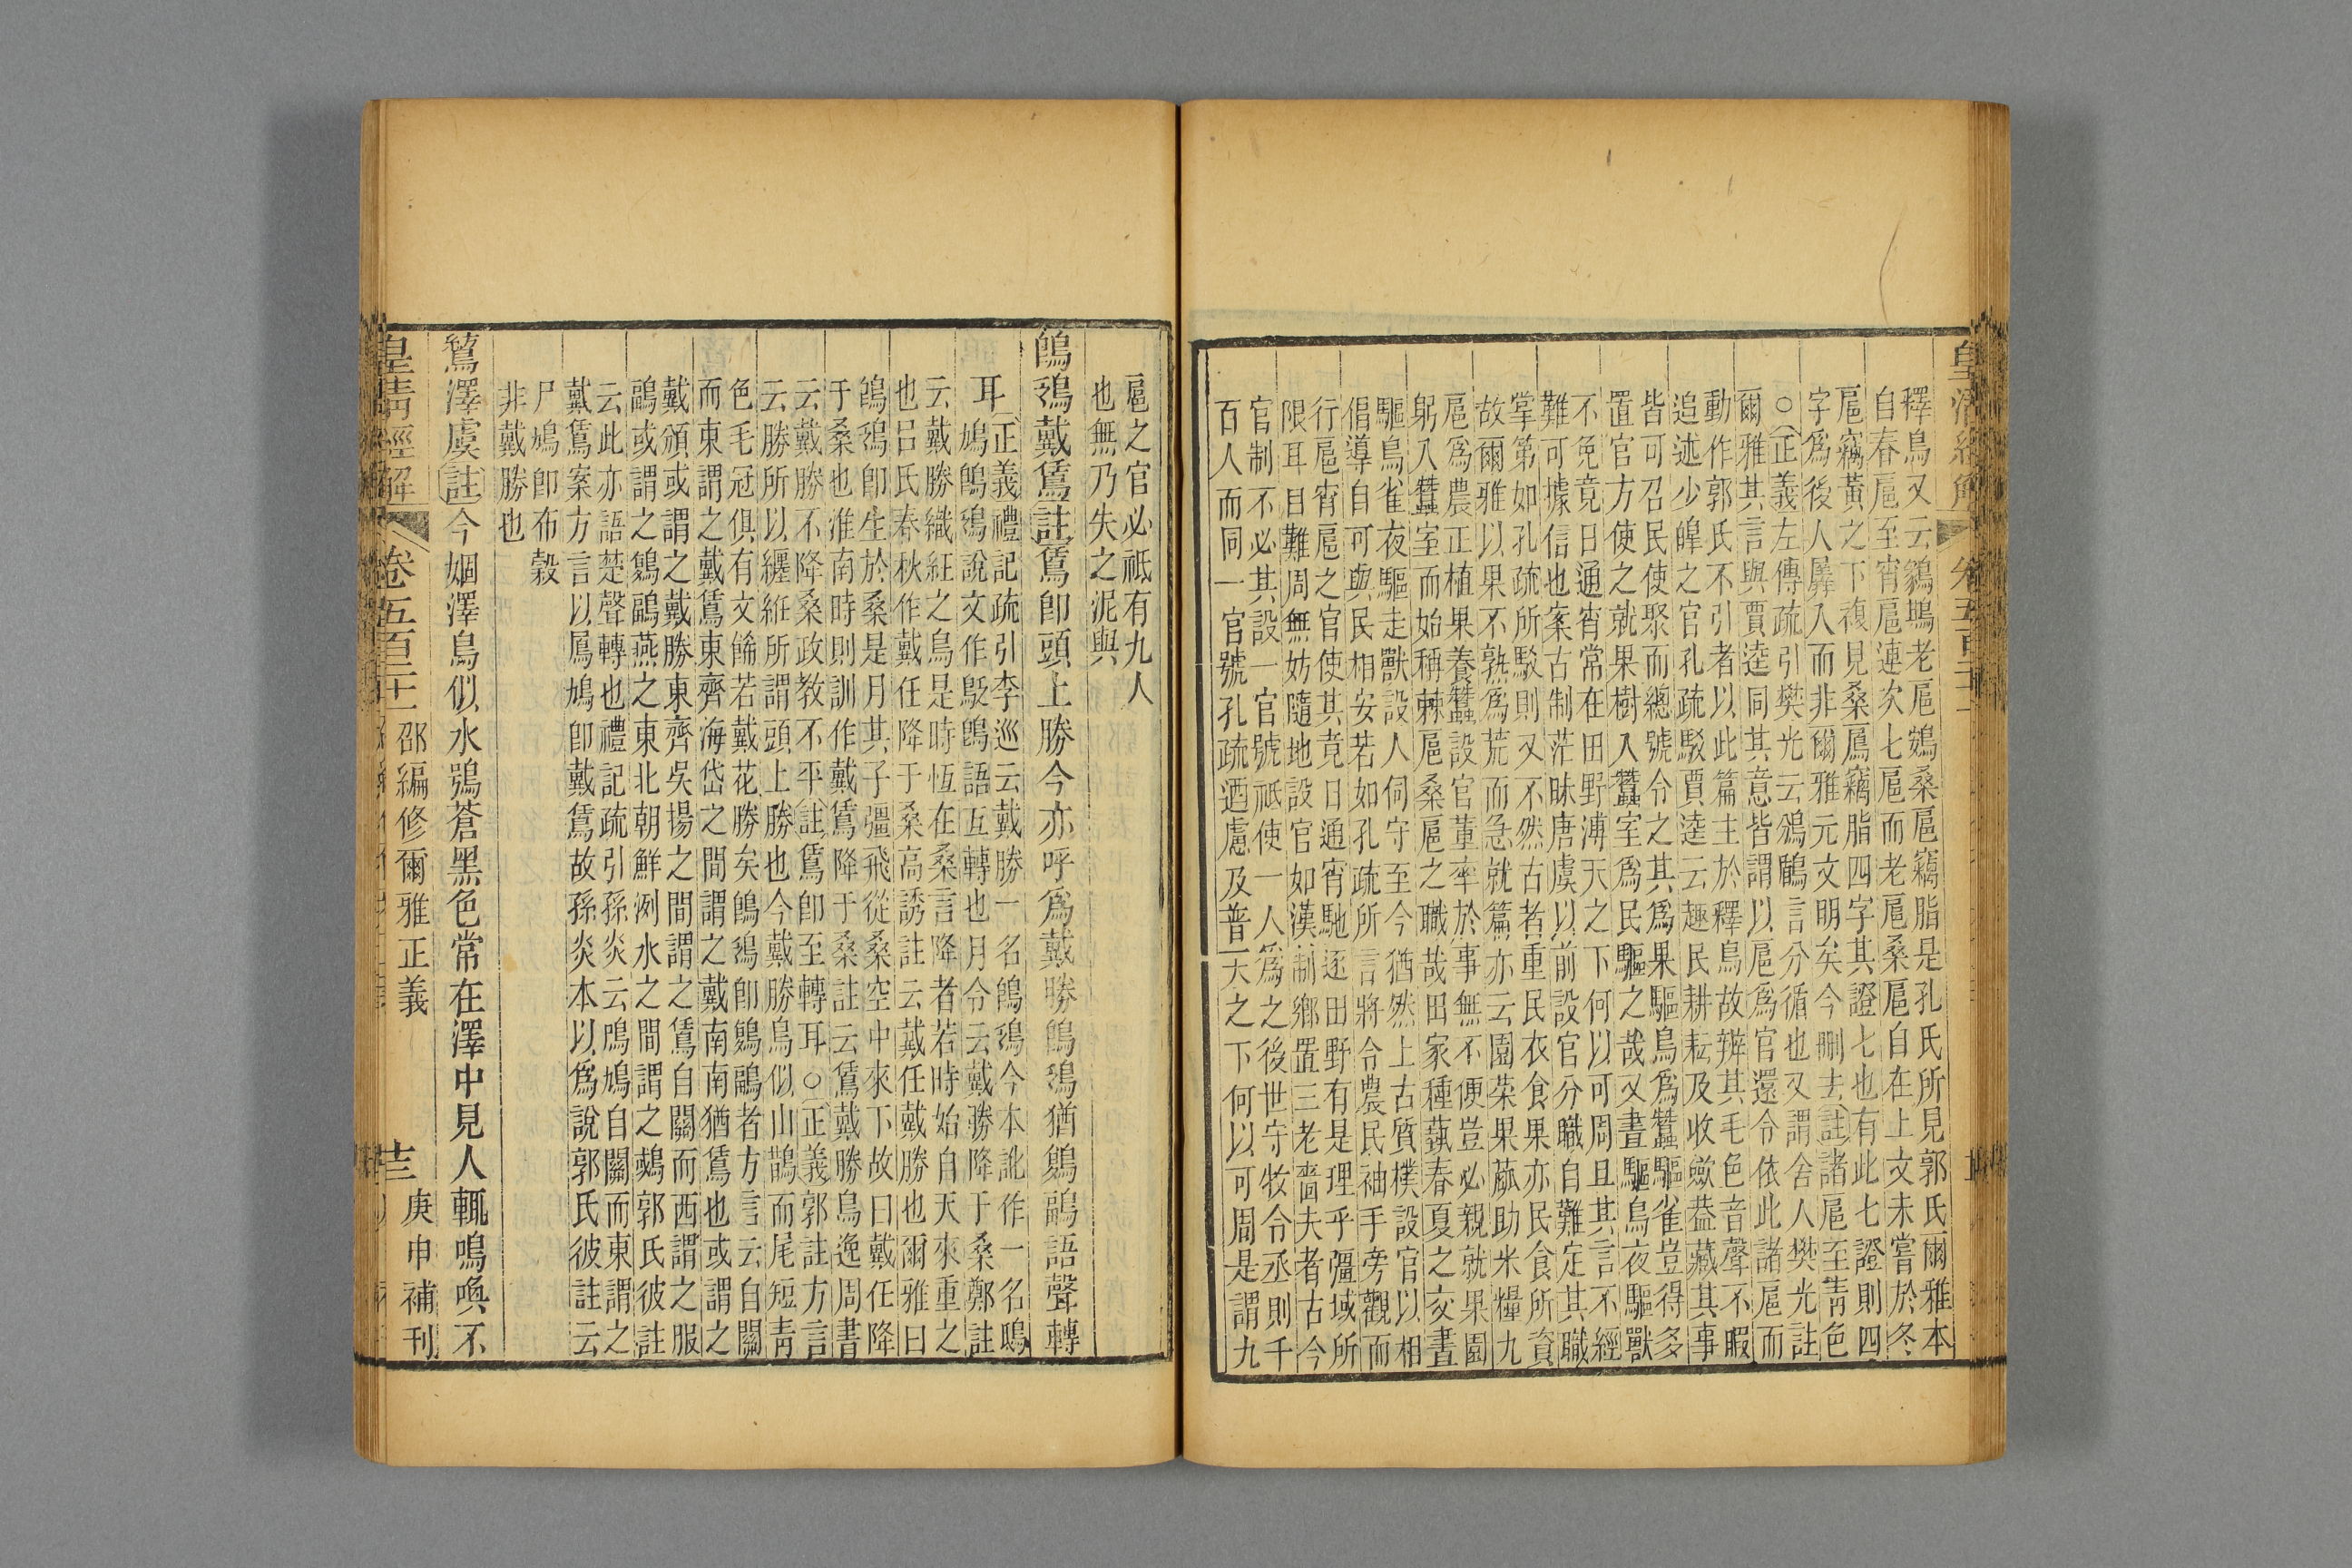 皇清經解
釋鳥又云鷚鴳老扈鳸桑扈竊脂是孔氏所見郭氏爾雅本
自春扈至宵扈連次七扈而老扈桑扈自在上文未嘗於冬
扈竊黃之下複見桑鳸竊脂四字其證七也有此七證則四
字爲後人羼入而非爾雅元文明矣今刪去註諸扈至靑色
○正義左傳疏引樊光云鳻鶥言分循也又謂舍人樊光註
爾雅其言與賈逵同其意皆謂以扈爲官還令依此諸扈而
動作郭氏不引者以此篇主於釋鳥故辨其毛色音聲不暇
追述少皞之官孔疏駁賈逵云趣民耕耘及收斂葢藏其事
皆可召民使聚而總號令之其爲果驅鳥爲蠶驅雀豈得多
置官方使之就果樹入蠶室爲民驅之哉又晝驅鳥夜驅獸
不免竟日通宵常在田野溥天之下何以可周且其言不經
難可據信也案古制茫昧唐虞以前設官分職自難定其職
掌第如孔疏所駁則又不然古者重民衣食果亦民食所資
故爾雅以果不孰爲荒而急就篇亦云園菜果蓏助米糧九
扈爲農正植果養蠶設官董率於事無不便豈必親就果園
躬入蠶室而始稱棘扈桑扈之職哉田家種蓺春夏之交晝
驅鳥雀夜驅走獸設人伺守至今猶然上古質樸設官以相
倡導自可與民相安若如孔疏所言將令農民袖手旁觀而
行扈宵扈之官使其竟日通宵馳逐田野有是理乎彊域所
限耳目難周無妨隨地設官如漢制鄉置三老嗇夫者古今
官制不必其設一官號祗使一人爲之後世守牧令丞則千
百人而同一官號孔疏迺慮及普天之下何以可周是謂九
扈之官必祗有九人
也無乃失之泥與
鵖鴔戴鵀註鵀卽頭上勝今亦呼爲戴勝鵖鴔猶鶝鶔語聲轉
耳正義禮記疏引李巡云戴勝一名鵖鴔今本訛作一名鳴
鳩鵖鴔說文作鴔鵖語互轉也月令云戴勝降于桑鄭註
云戴勝織紝之鳥是時恆在桑言降者若時始自天來重之
也呂氏春秋作戴任降于桑高誘註云戴任戴勝也爾雅曰
鵖鴔卽生於桑是月其子彊飛從桑空中來下故曰戴任降
于桑也淮南時則訓作戴鵀降于桑註云鵀戴勝鳥逸周書
云戴勝不降桑政教不平註鵀卽至轉耳○正義郭註方言
云勝所以纏紝所謂頭上勝也今戴勝鳥似山鵲而尾短靑
色毛冠俱有文飾若戴花勝矣鵖鴔卽鶝鶔者方言云自關
而東謂之戴鵀東齊海岱之間謂之戴南南猶鵀也或謂之
戴頒或謂之戴勝東齊吳揚之間謂之鵀自關而西謂之服
鶝或謂之鶝鶔燕之東北朝鮮洌水之間謂之鶝郭氏彼註
云此亦語楚聲轉也禮記疏引孫炎云鳴鳩自關而東謂之
戴鵀案方言以鳲鳩卽戴鵀故孫炎本以爲說郭氏彼註云
尸鳩卽布穀
非戴勝也
鶭澤虞註今婟澤鳥似水鴞蒼黑色常在澤中見人輒鳴喚不
皇清經解 卷五百二十二 邵編修爾雅正義 十三 庚申補刊